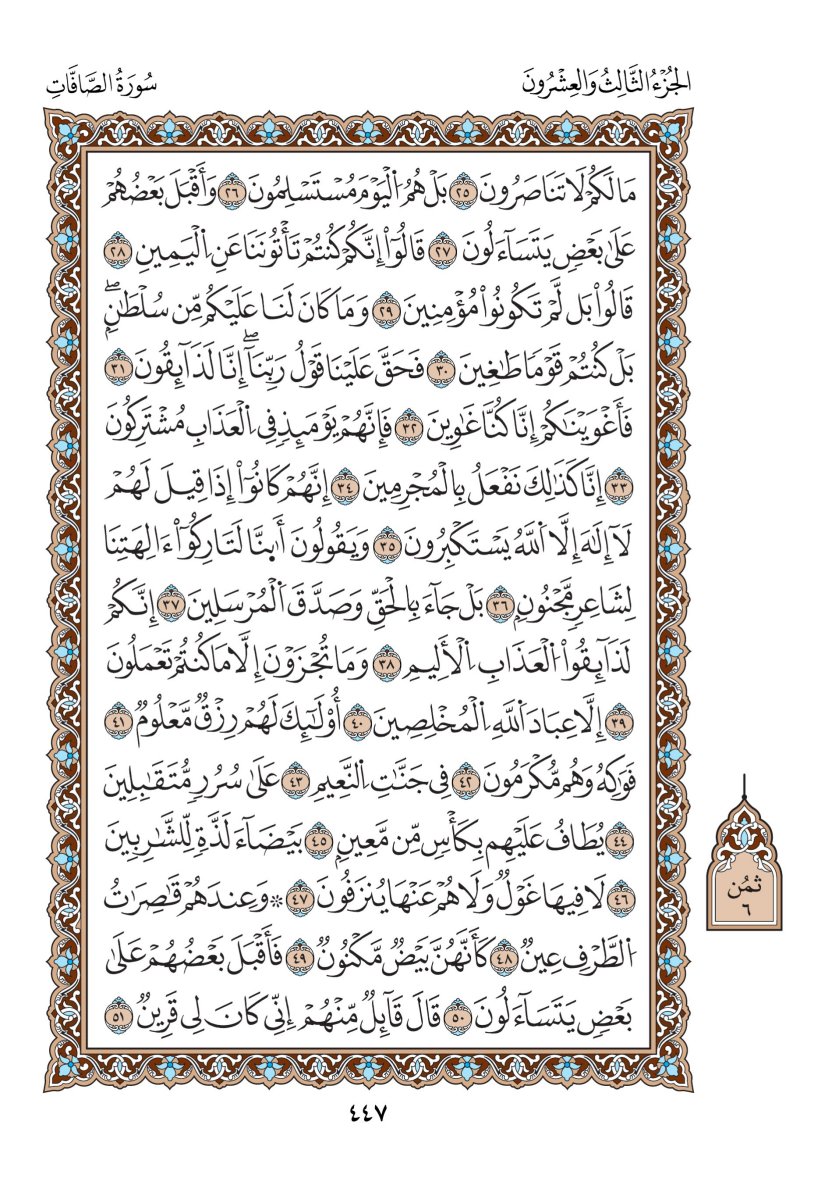 الجُزْءُ الثَّالِثُ وَالعِشْرُونَ
سُورَةُ الصَّافَّاتِ
مَا لَكُمْ لَا تَنَاصَرُونَ ٢٥ بَلْ هُمُ اُ۬لْيَوْمَ مُسْتَسْلِمُونَ ٢٦ وَأَقْبَلَ بَعْضُهُمْ
عَلَىٰ بَعْضٖ يَتَسَآءَلُونَ ٢٧ قَالُوٓاْ إِنَّكُمْ كُنتُمْ تَأْتُونَنَا عَنِ اِ۬لْيَمِينِ ٢٨
قَالُواْ بَل لَّمْ تَكُونُواْ مُؤْمِنِينَ ٢٩ وَمَا كَانَ لَنَا عَلَيْكُم مِّن سُلْطَٰنِۢۖ
بَلْ كُنتُمْ قَوْمٗا طَٰغِينَ ٣٠ فَحَقَّ عَلَيْنَا قَوْلُ رَبِّنَآۖ إِنَّا لَذَآئِقُونَ ٣١
فَأَغْوَيْنَٰكُمْ إِنَّا كُنَّا غَٰوِينَ ٣٢ فَإِنَّهُمْ يَوْمَئِذٖ فِي اِ۬لْعَذَابِ مُشْتَرِكُونَ
٣٣ إِنَّا كَذَٰلِكَ نَفْعَلُ بِالْمُجْرِمِينَ ٣٤ إِنَّهُمْ كَانُوٓاْ إِذَا قِيلَ لَهُمْ
لَآ إِلَٰهَ إِلَّا اَ۬للَّهُ يَسْتَكْبِرُونَ ٣٥ وَيَقُولُونَ أَى۪نَّا لَتَارِكُوٓاْ ءَالِهَتِنَا
لِشَاعِرٖ مَّجْنُونِۢ ٣٦ بَلْ جَآءَ بِالْحَقِّ وَصَدَّقَ اَ۬لْمُرْسَلِينَ ٣٧ إِنَّكُمْ
لَذَآئِقُواْ اُ۬لْعَذَابِ اِ۬لْأَلِيمِ ٣٨ وَمَا تُجْزَوْنَ إِلَّا مَا كُنتُمْ تَعْمَلُونَ
٣٩ إِلَّا عِبَادَ اَ۬للَّهِ اِ۬لْمُخْلِصِينَ ٤٠ أُوْلَٰٓئِكَ لَهُمْ رِزْقٞ مَّعْلُومٞ ٤١
فَوَٰكِهُ وَهُم مُّكْرَمُونَ ٤٢ فِي جَنَّٰتِ اِ۬لنَّعِيمِ ٤٣ عَلَىٰ سُرُرٖ مُّتَقَٰبِلِينَ
٤٤ يُطَافُ عَلَيْهِم بِكَأْسٖ مِّن مَّعِينِۢ ٤٥ بَيْضَآءَ لَذَّةٖ لِّلشَّٰرِبِينَ
٤٦ لَا فِيهَا غَوْلٞ وَلَا هُمْ عَنْهَا يُنزَفُونَ ٤٧ ۞وَعِندَهُمْ قَٰصِرَٰتُ
اُ۬لطَّرْفِ عِينٞ ٤٨ كَأَنَّهُنَّ بَيْضٞ مَّكْنُونٞ ٤٩ فَأَقْبَلَ بَعْضُهُمْ عَلَىٰ
بَعْضٖ يَتَسَآءَلُونَ ٥٠ قَالَ قَآئِلٞ مِّنْهُمْ إِنِّي كَانَ لِي قَرِينٞ ٥١
ثمُن
٦
٤٤٧